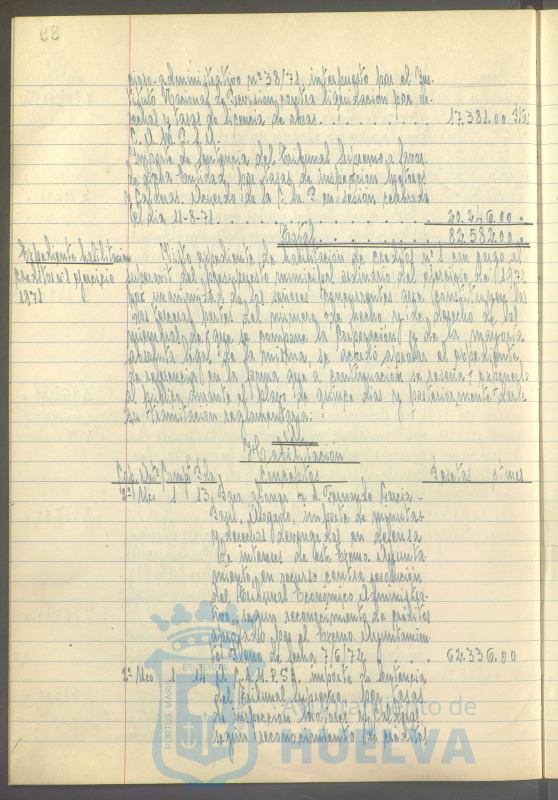 89
cioso-administrativo nº 38/71, interpuesto por el Ins-
tituto Nacional de Previsión contra liquidación por de-
rechos y tasas de licencia de obras. . . . . . . . 17.381.00 Ptas
C. A. M. P. S. A.
Importe de sentencia del Tribunal Supremo a favor
de dicha Entidad por tasas de inspección motores
y Calderas. Acuerdo de la C. M. P. en sesión celebrada
el día 11-8-71. . . . . . . . . . 20.246.00.
Total . . . . . . . . 82.582.00.
Expediente habilitación
creditos nº 1 ejercicio
1971
Visto expediente de habilitación de credito nº 1 con cargo al
superavit del presupuesto municipal ordinario del ejercicio de 1971
por unanimidad de los señores concurrentes que constituyen las
dos terceras partes del número de hecho y de derecho de los
miembros de que se compone la Corporación y de la mayoría
absoluta legal de la misma se acordó aprobar el expediente
de referencia en la forma que a continuación se reseña exponer
al público durante el plazo de quince días y posteriormente dar
tramitación reglamentaria:
Habilitación
Conceptos Pesetas
1 13. Para abonar a D. Fernando García-
Abogado, importe de minutas
y derechos devengados en defensa
de intereses de este Excmo. Ayunta-
miento, en recurso contra resolución
del Tribunal Económico Administra-
tivo, según reconocimiento de creditos
aprobado por el Excmo. Ayuntamien-
to Pleno de fecha 7/6/72. . 62.336.00
1 14 A C.A.M.P.S.A. importe de sentencia
del Tribunal Supremo por tasas
de inspección motores y Calderas
según reconocimiento de creditos
PORTUS MARIS
ET TERRAE
Ayuntamiento de
HUELVA